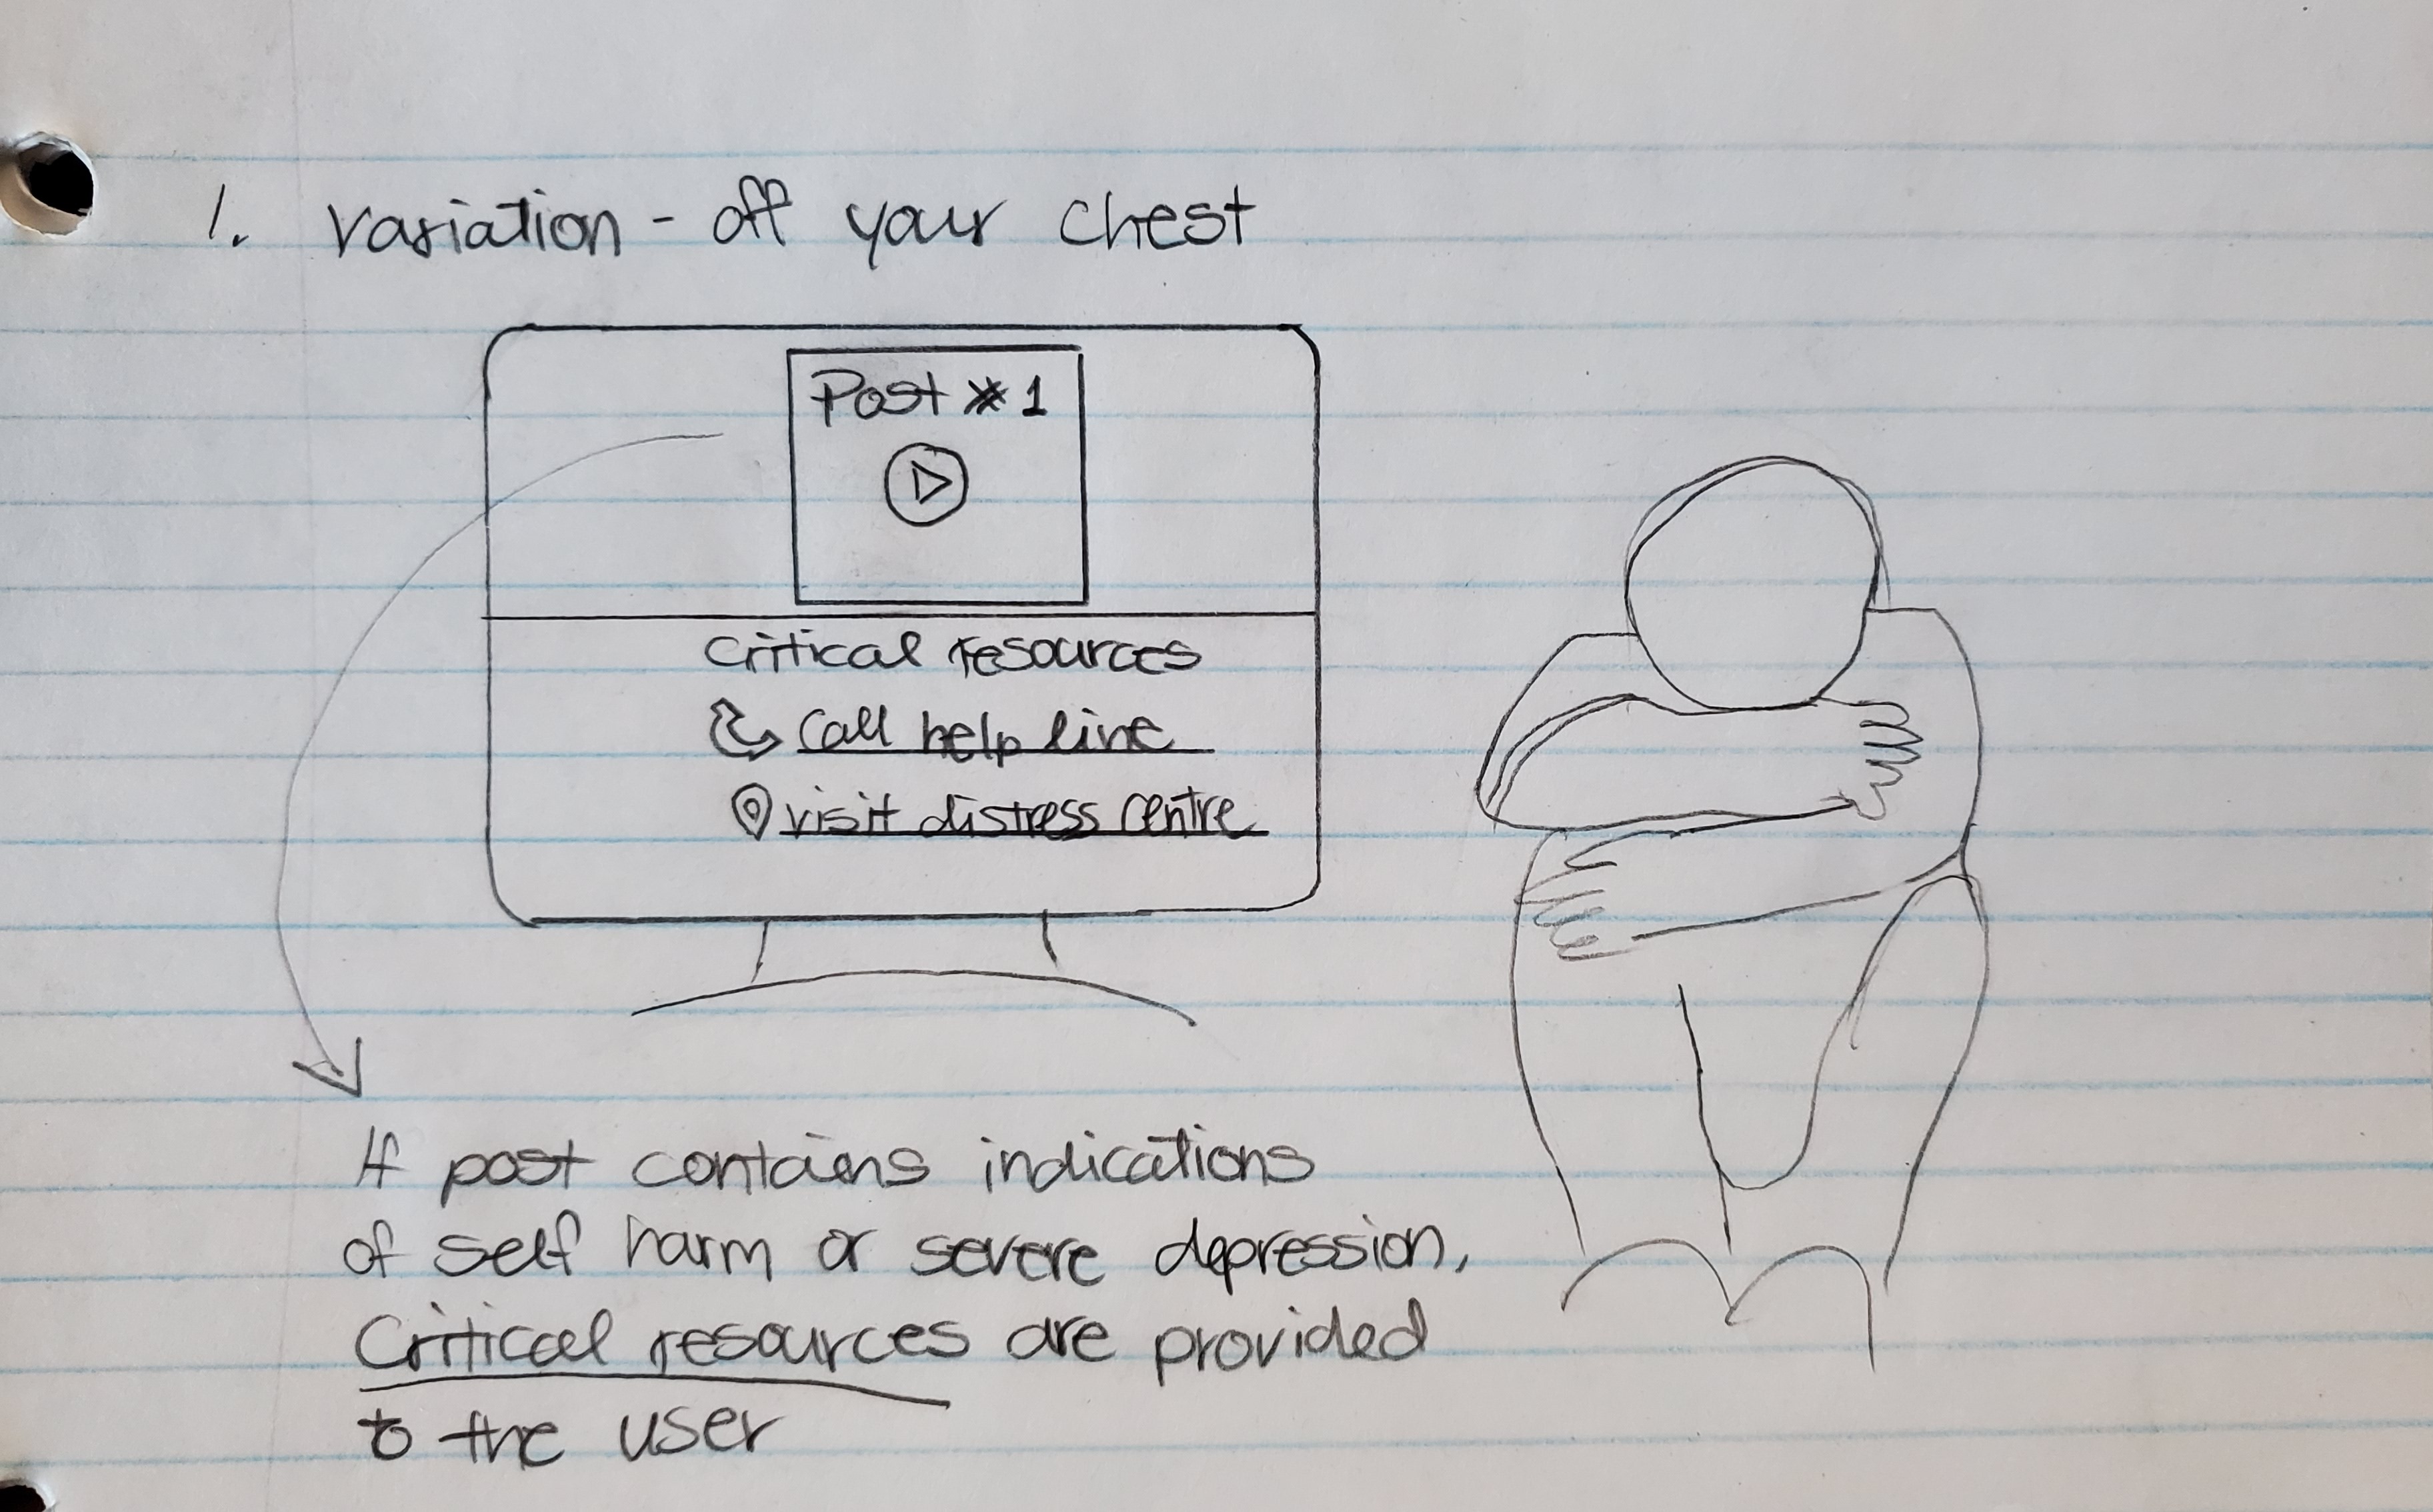 1. Variation - off your chest
Post #1
Critical resources
Call help line
visit distress centre
If post contains indications
of self harm or severe depression,
Critical resources are provided
to the user